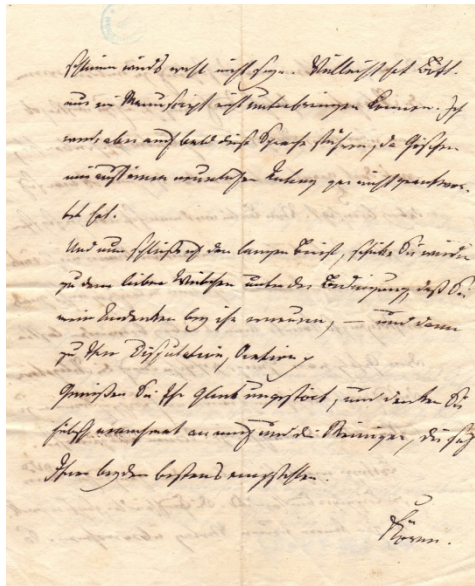 schlimm wird's wohl nicht seyn. Vielleicht hat
uns ein Manuscript nicht unterbringen können. Ich
werde aber auch bald diese Sprache führen, da Göschen
mir auf einen neuerlichen Antrag gar nicht geantwor-
tet hat.
Und nun schließe ich den langen Brief, schicke Sie wieder
zu dem lieben Weibchen unter der Bedingung, daß Sie
mein Andenken bey ihr erneuen, — und dann
zu Ihrer Disputation,
Genießen Sie Ihr Glück ungestört, und denken Sie
hübsch an mich und die Meinigen, die sich
Ihnen beyden bestens empfehlen.
Körner.